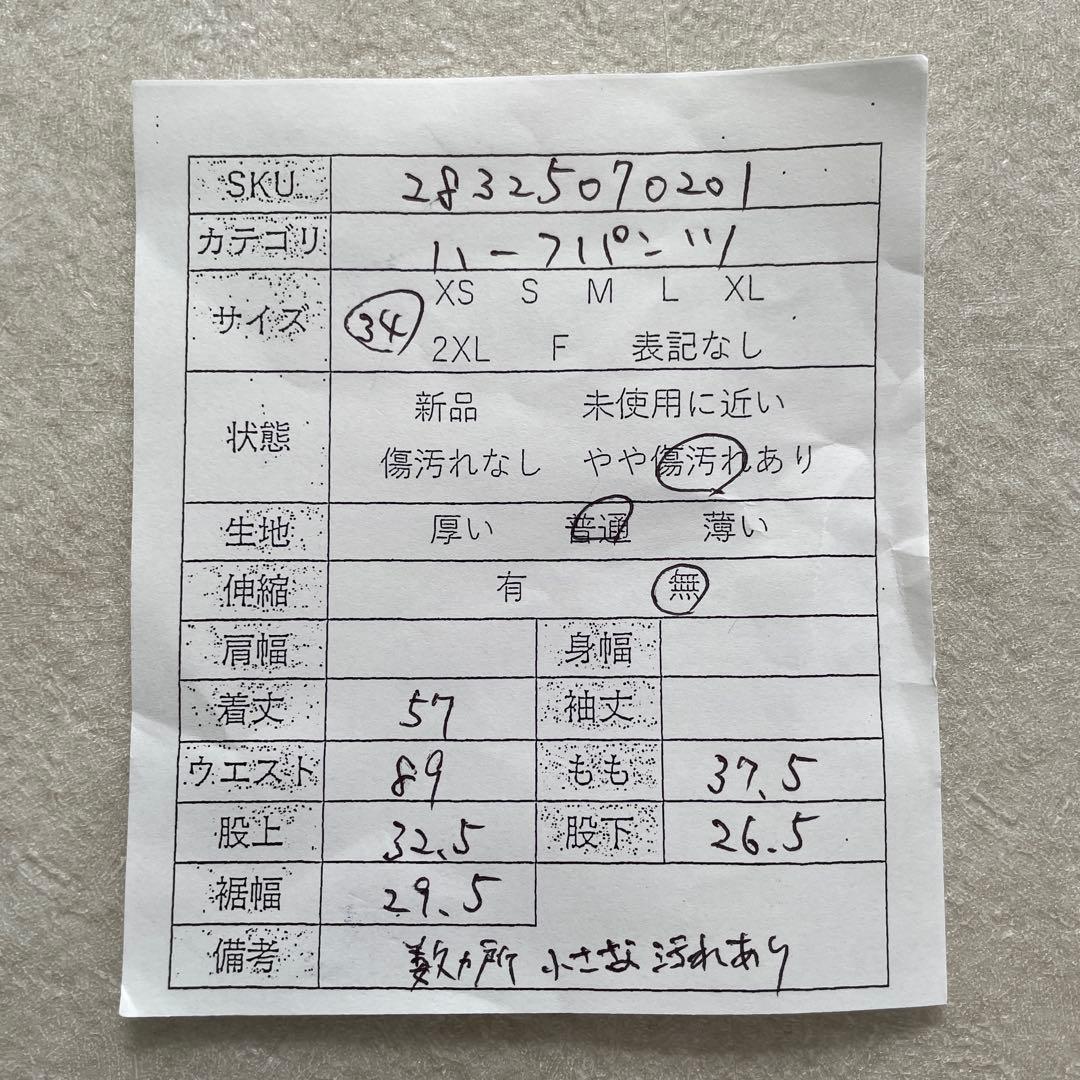 SKU 28325070201
カテゴリ ハーフパンツ
サイズ 34 XS S M L XL
2XL F 表記なし
状態 新品 未使用に近い
傷汚れなし やや傷汚れあり
生地 厚い 普通 薄い
伸縮 有 無
肩幅 身幅
着丈 57 袖丈
ウエスト 89 もも 37.5
股上 32.5 股下 26.5
裾幅 29.5
備考 数ヵ所 小さな汚れあり